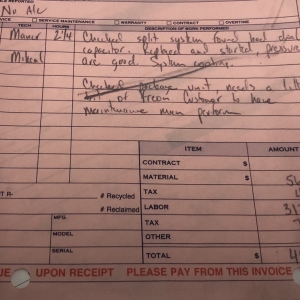 No A/c
SERVICE MAINTENANCE WARRANTY CONTRACT OVERTIME
TECH HOURS DESCRIPTION OF WORK PERFORMED
2 1/4 Checked split system found bad dual
capacitor. Replaced and started, pressures
Mikeal are good System cooling.
Checked package unit, needs a little
bit of Freon Customer to have
maintenance man perform
ITEM AMOUNT
CONTRACT $
MATERIAL $
TAX
R- # Recycled
# Reclaimed LABOR
MFG. TAX
MODEL OTHER
SERIAL TOTAL $
UE UPON RECEIPT PLEASE PAY FROM THIS INVOICE